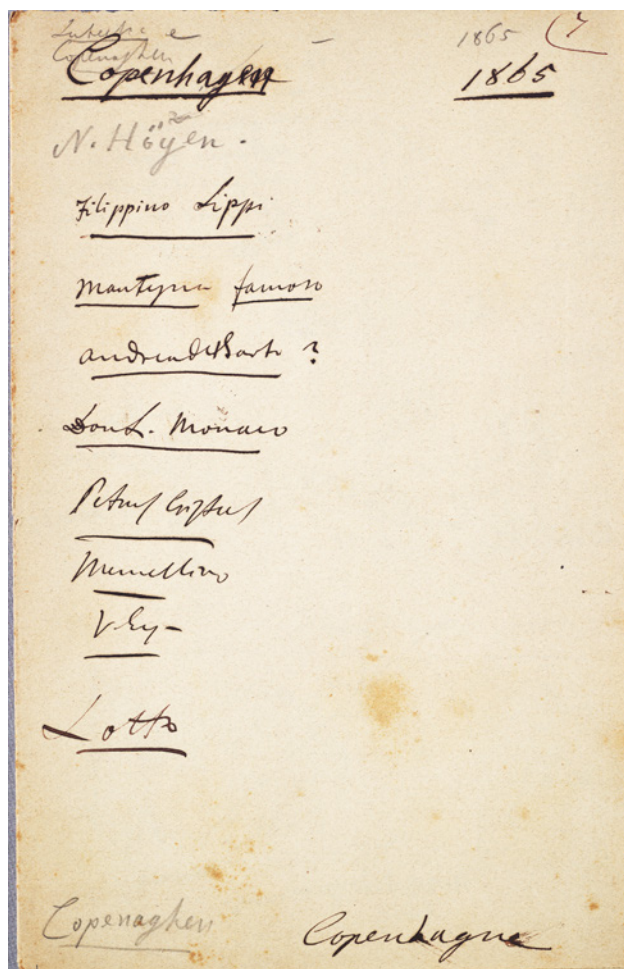 e 1865 7
Copenaghen
Copenhagen 1865
N. Höyen.
Filippino Lippi
Mantegna famoso
Andrea del Sarto ?
Don L. Monaco
Petrus Cristus
Memellino
V. Ey-
Lotto
Copenaghen Copenhague